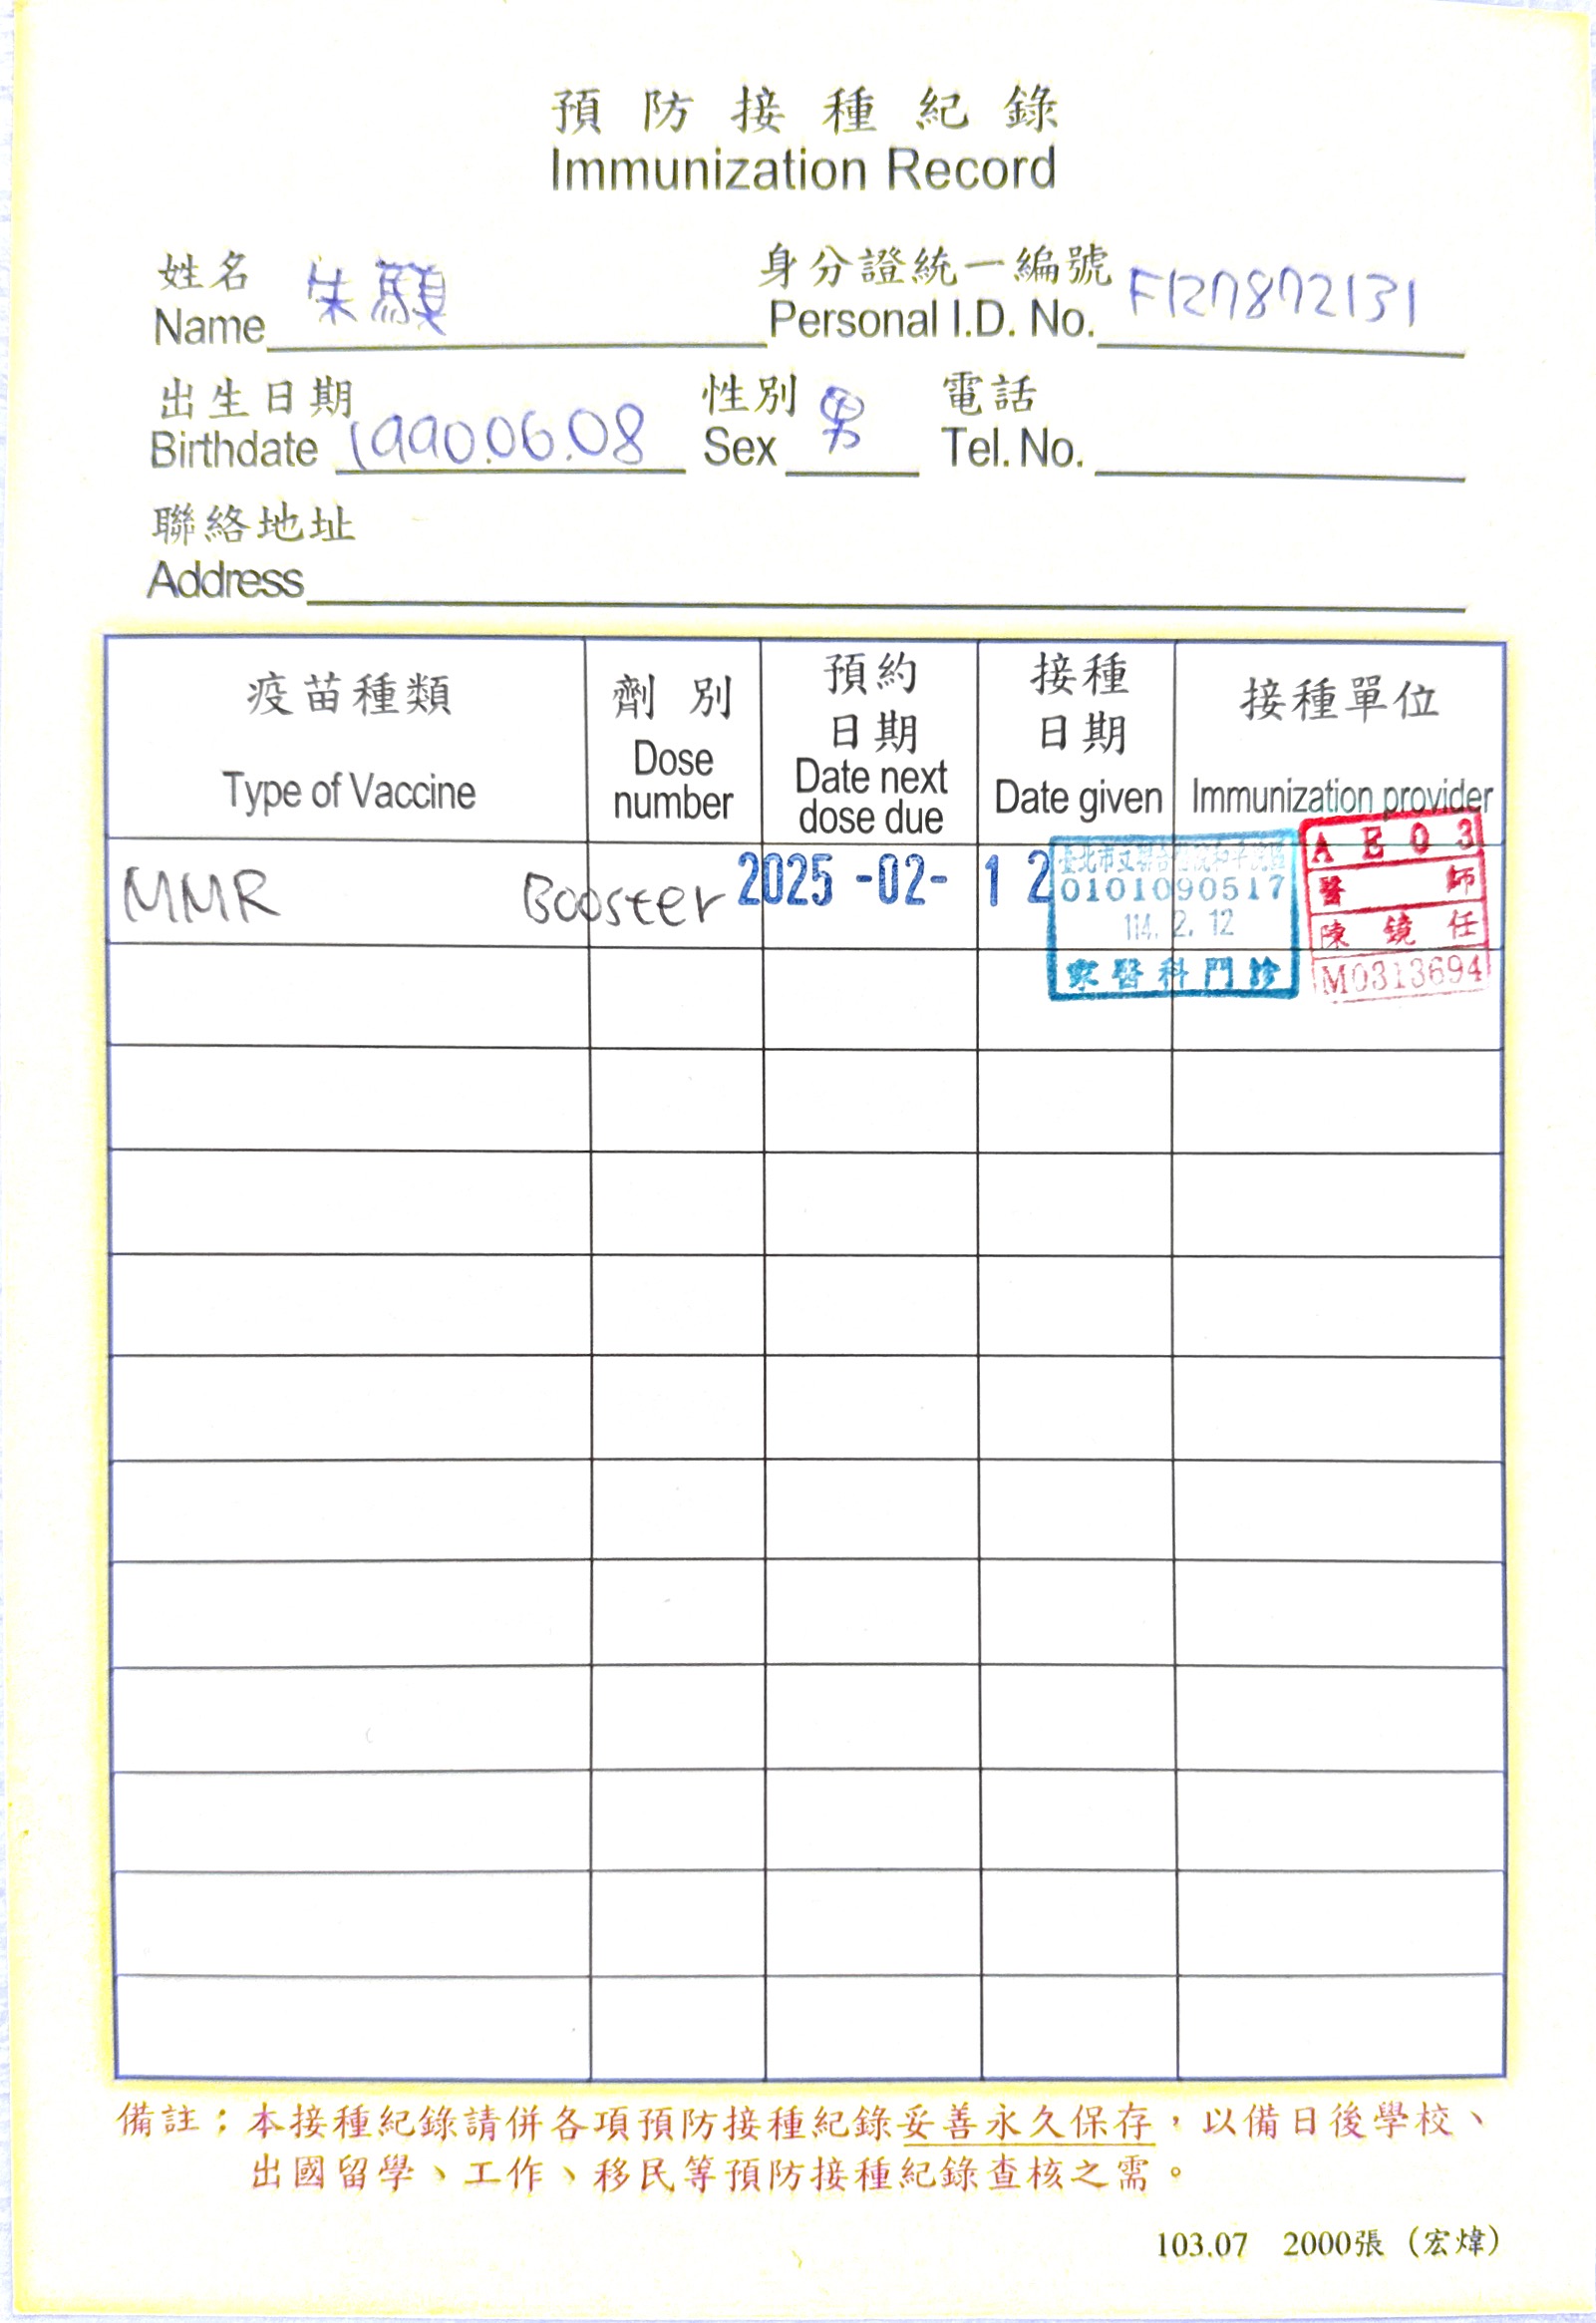 預防接種紀錄
Immunization Record
姓名
Name 朱
身分證統一編號
Personal I.D. No. F127872131
出生日期
Birthdate 1990.06.08
性別
Sex 男
電話
Tel. No.
聯絡地址
Address
疫苗種類
Type of Vaccine
劑別
Dose
number
預約
日期
Date next
dose due
接種
日期
Date given
接種單位
Immunization provider
MMR Booster 2025-02-12
臺北市立聯合醫院和平院區
0101090517
114. 2. 12
家醫科門診
AE03
醫師
陳鏡任
M0313694
備註：本接種紀錄請併各項預防接種紀錄妥善永久保存，以備日後學校、
出國留學、工作、移民等預防接種紀錄查核之需。
103.07 2000張（宏煒）